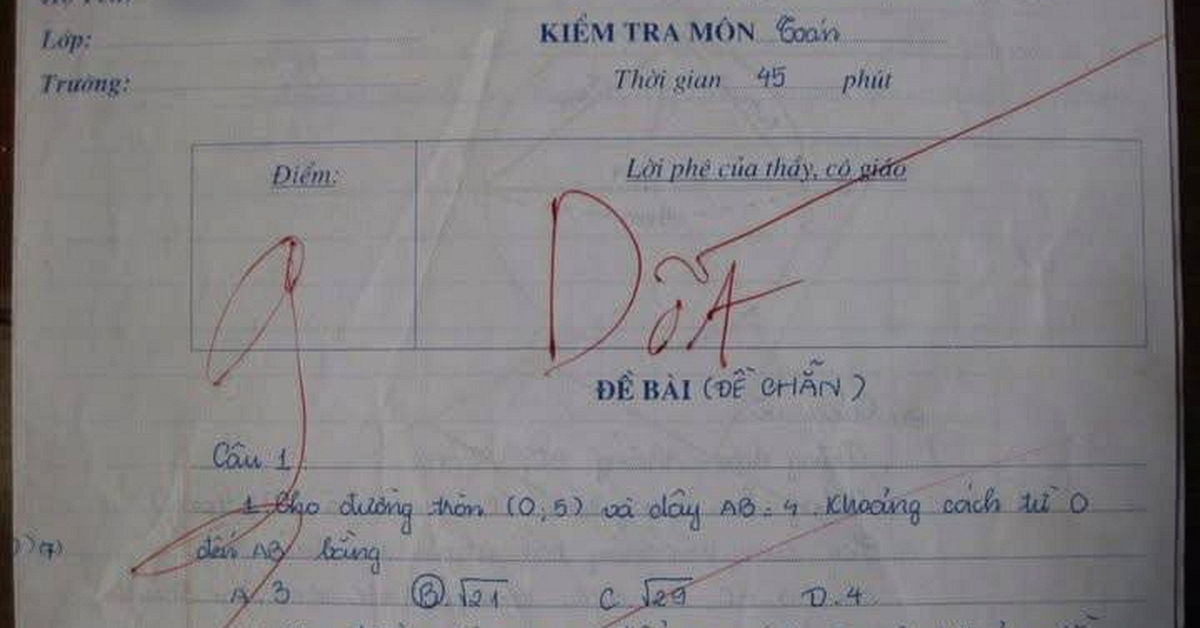 Lớp:
KIỂM TRA MÔN Toán
Trường:
Thời gian 45 phút
Điểm:
Lời phê của thầy, cô giáo
9
Dốt
ĐỀ BÀI (ĐỀ CHẴN)
Câu 1
1 Cho đường tròn (O, 5) và dây AB = 4. Khoảng cách từ O
đến AB bằng
A. 3 B √21 C √29 D. 4